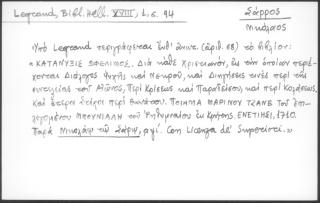 Legrand, Bibl. Hell. XVIII, I, σ. 94
Σάρρος
Νικόλαος
Ὑπὸ Legrand περιγράφεται (ἀριθ. 68) τὸ βιβλίον:
«ΚΑΤΑΝΥΞΙΣ ΩΦΕΛΙΜΟΣ. Διὰ κάθε Χριστιανόν, εἰς τὴν ὁποίαν περιέ-
χονται Διάλογος ψυχῆς καὶ Νεκροῦ, καὶ Διηγήσεις τινὲς περὶ τῆς
συντελείας τοῦ Αἰῶνος, Περὶ Κρίσεως καὶ Παραδείσου, καὶ περὶ Κολάσεως,
Καὶ ἕτεροι Στίχοι περὶ θανάτου. ΠΟΙΗΜΑ ΜΑΡΙΝΟΥ ΤΖΑΝΕ τοῦ ἐπι-
λεγομένου ΜΠΟΥΝΙΑΛΗ τοῦ Ῥηθυμναίου ἐκ Κρήτης. ΕΝΕΤΙΗΣΙ, 1710.
Παρὰ Νικολάῳ τῷ Σάρῳ, αψί. Con Licenza de' Superiori.»